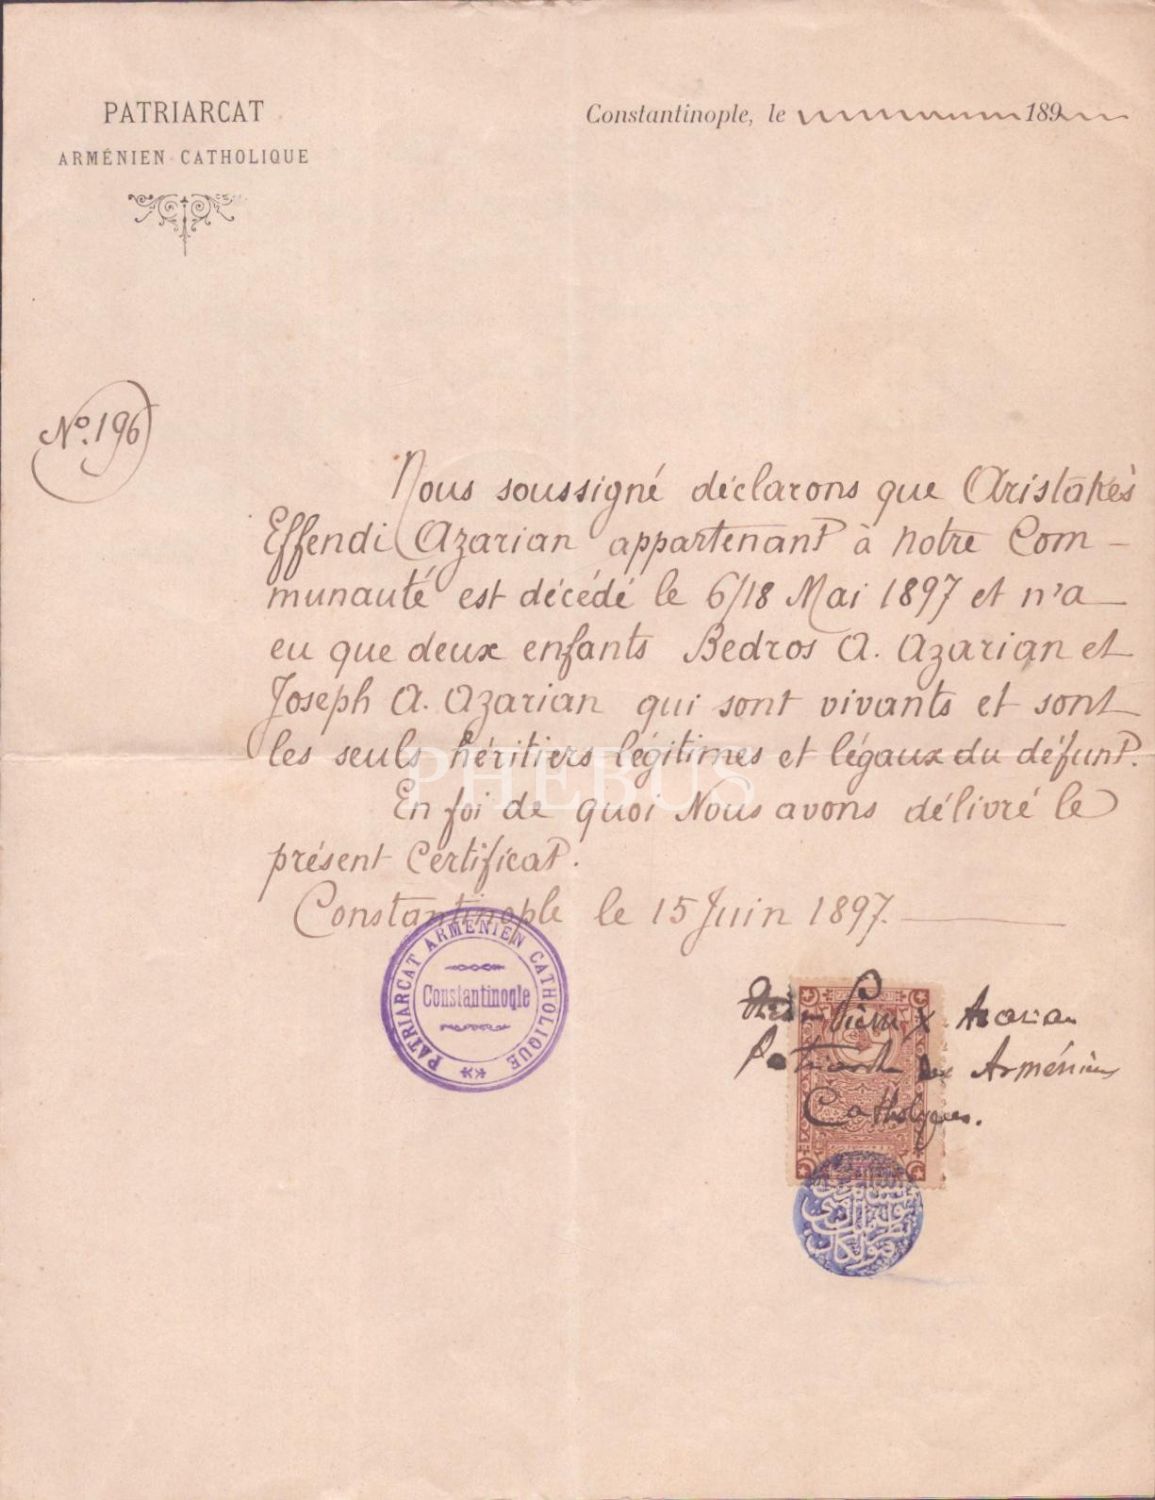 PATRIARCAT
ARMÉNIEN CATHOLIQUE
Constantinople, le 189
No. 196
Nous soussigné déclarons que Aristakès
Effendi Azarian appartenant à notre Com-
munauté est décédé le 6/18 Mai 1897 et n'a
eu que deux enfants Bedros A. Azarian et
Joseph A. Azarian qui sont vivants et sont
les seuls héritiers légitimes et légaux du défunt.
En foi de quoi Nous avons délivré le
présent Certificat.
Constantinople le 15 Juin 1897.
PATRIARCAT ARMENIEN CATHOLIQUE
Constantinople
Pierre X Azarian
Patriarche des Arméniens
Catholiques.
PHEBUS